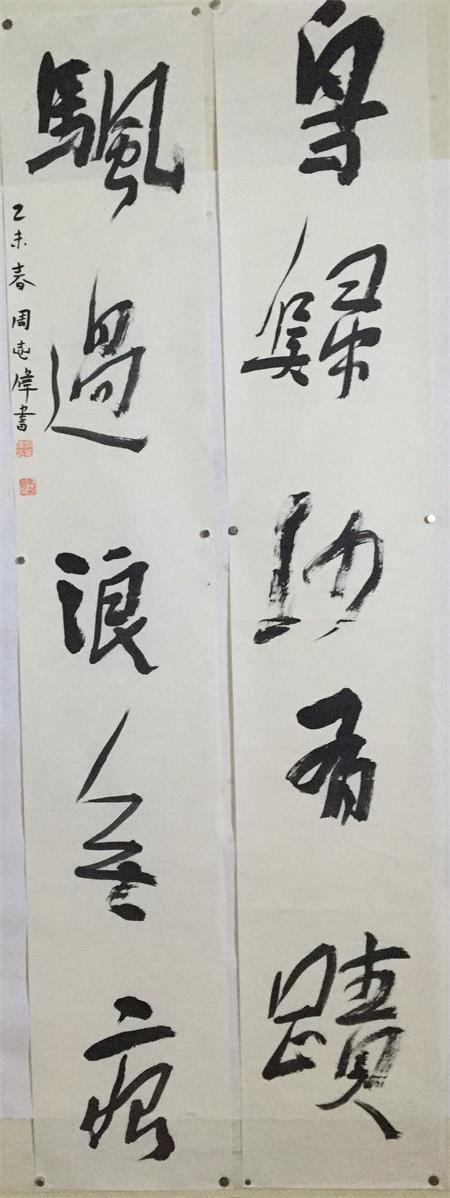 鳥歸沙有蹟
颿過浪無痕
乙未春周志偉書